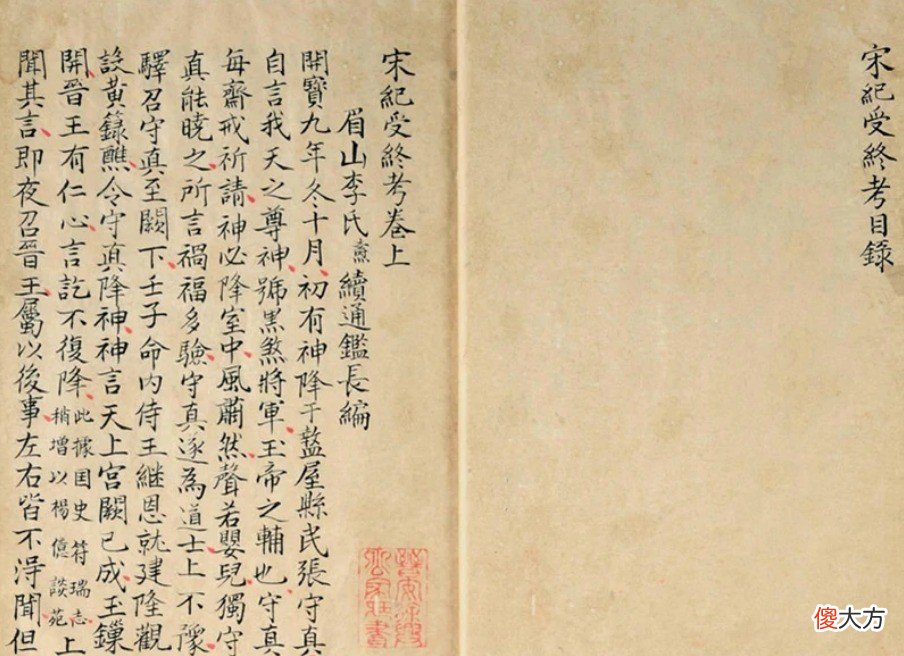 宋紀受終考目錄
宋紀受終考卷上
眉山李氏燾續通鑑長編
開寶九年冬十月初有神降于盩厔縣民張守真
自言我天之尊神號黑煞將軍玉帝之輔也守真
每齋戒祈請神必降室中風肅然聲若嬰兒獨守
真能曉之所言禍福多驗守真遂為道士上不豫
驛召守真至闕下壬子命內侍王繼恩就建隆觀
設黃籙醮令守真降神神言天上宮闕已成玉鏁
開晉王有仁心言訖不復降此據国史符瑞志稍增以楊億談苑上
聞其言即夜召晉王屬以後事左右皆不淂聞但
傻大方